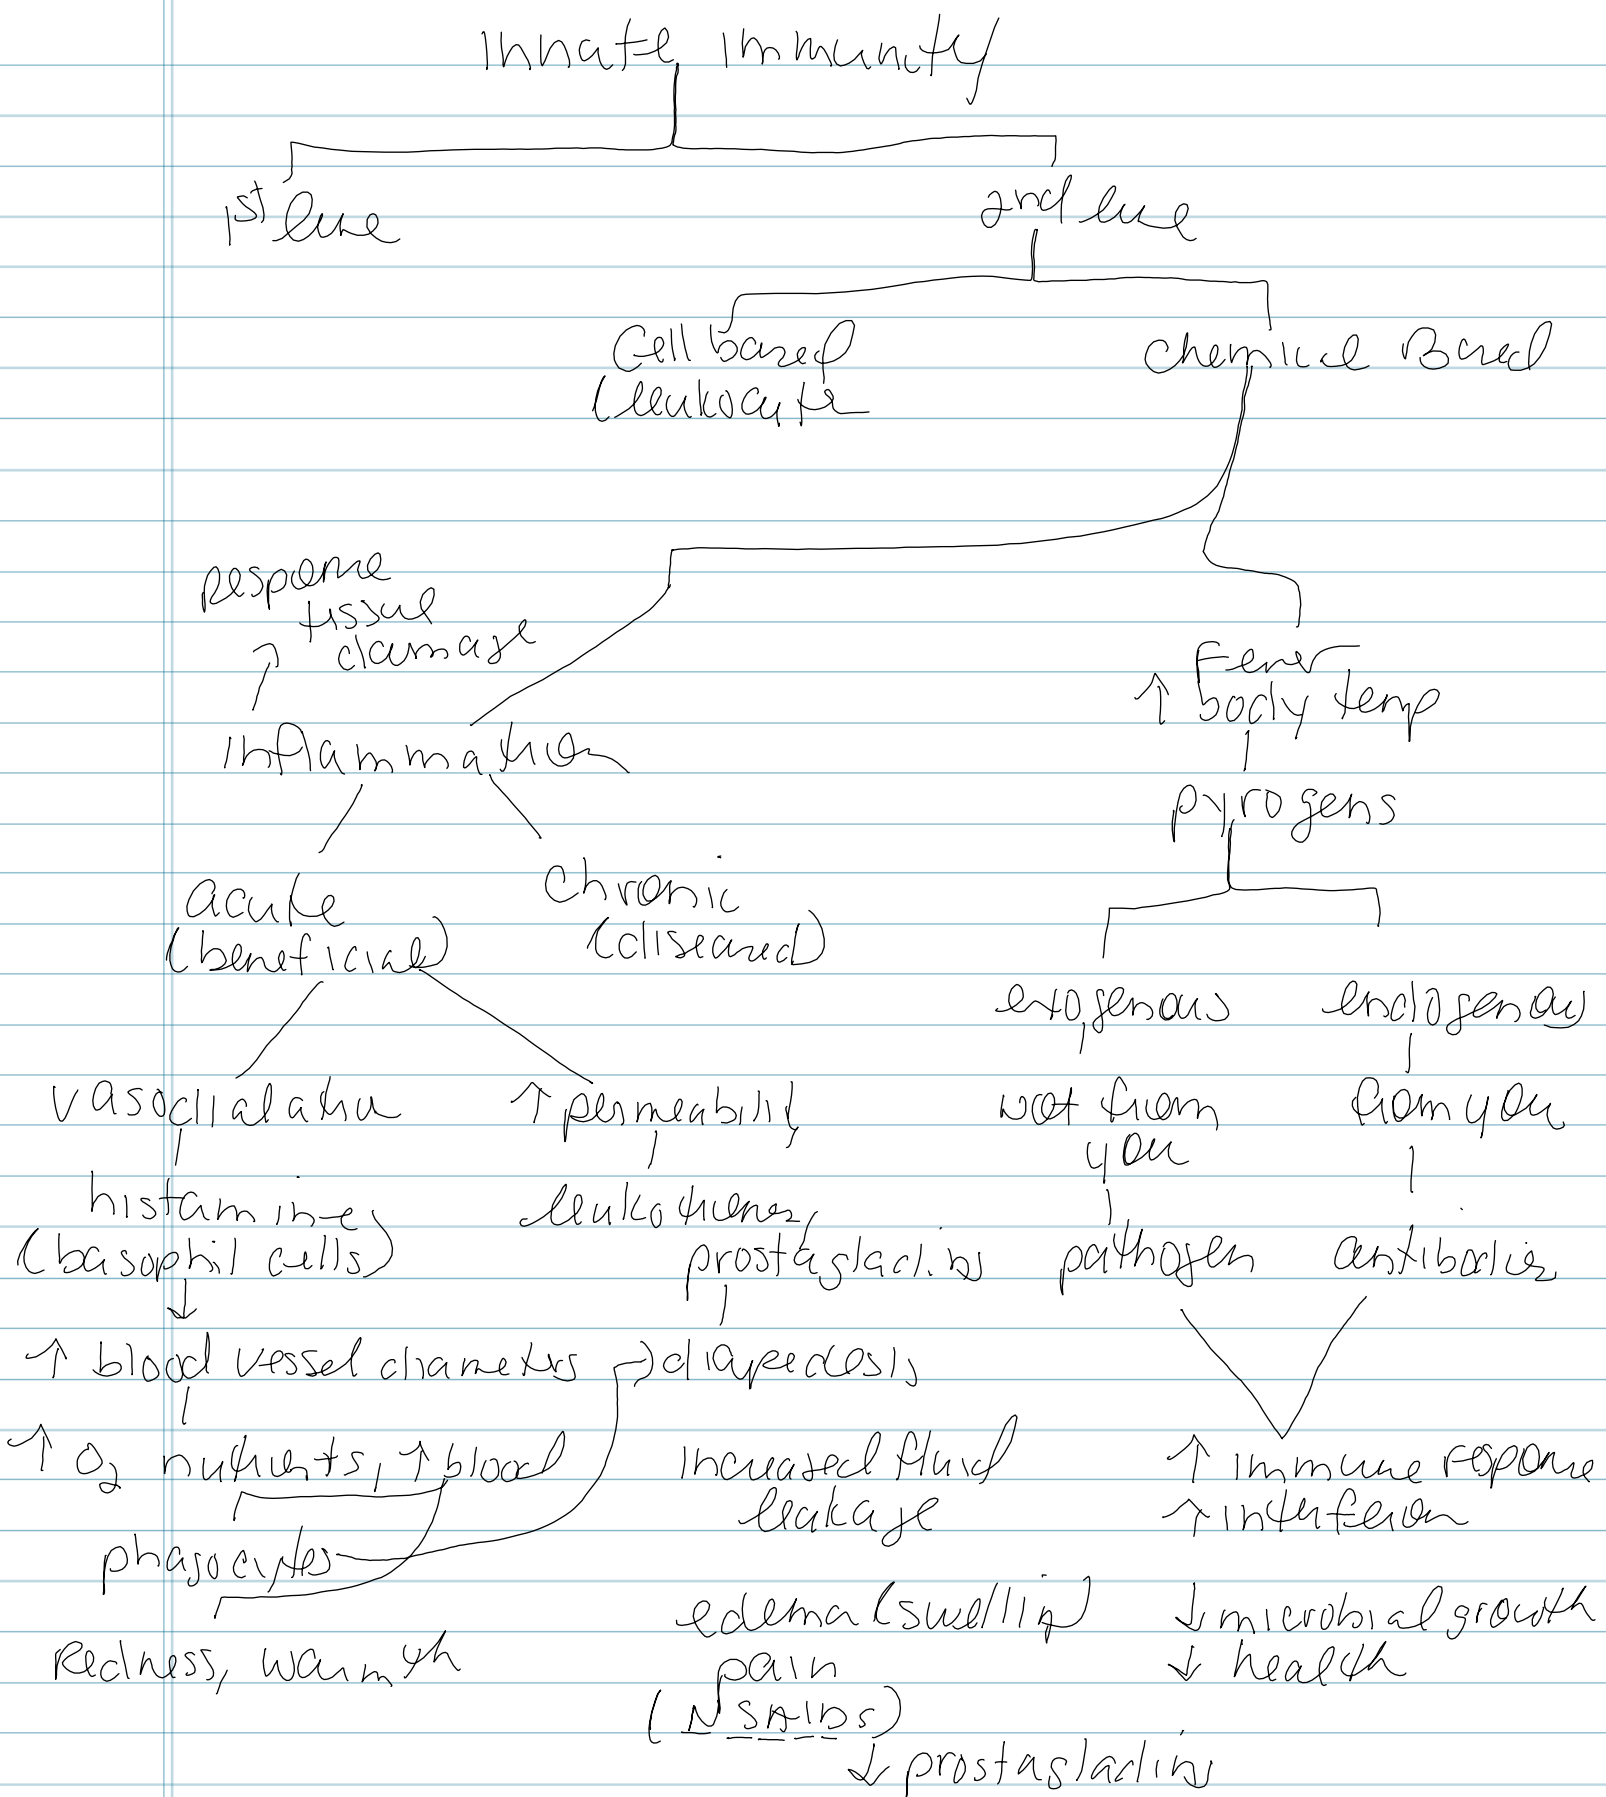 Innate immunity
1st line
2nd line
Cell based
(leukocyte
Chemical Based
Response
tissue
damage
inflammation
Fever
↑ body temp
pyrogens
acute
(beneficial)
Chronic
(diseased)
exogenous
endogenous
vasodialation
↑ permeability
not from
you
from you
histamines
(basophil cells)
leukotrienes,
prostagladins
pathogen
antibodies
↑ blood vessel diameters
→ diapedesis
↑ O2 nutrients, ↑ blood
increased fluid
leakage
↑ immune response
↑ interferon
phagocytes
edema (swelling)
pain
(NSAIDs)
↓ prostagladins
↓ microbial growth
↓ health
Redness, warmth